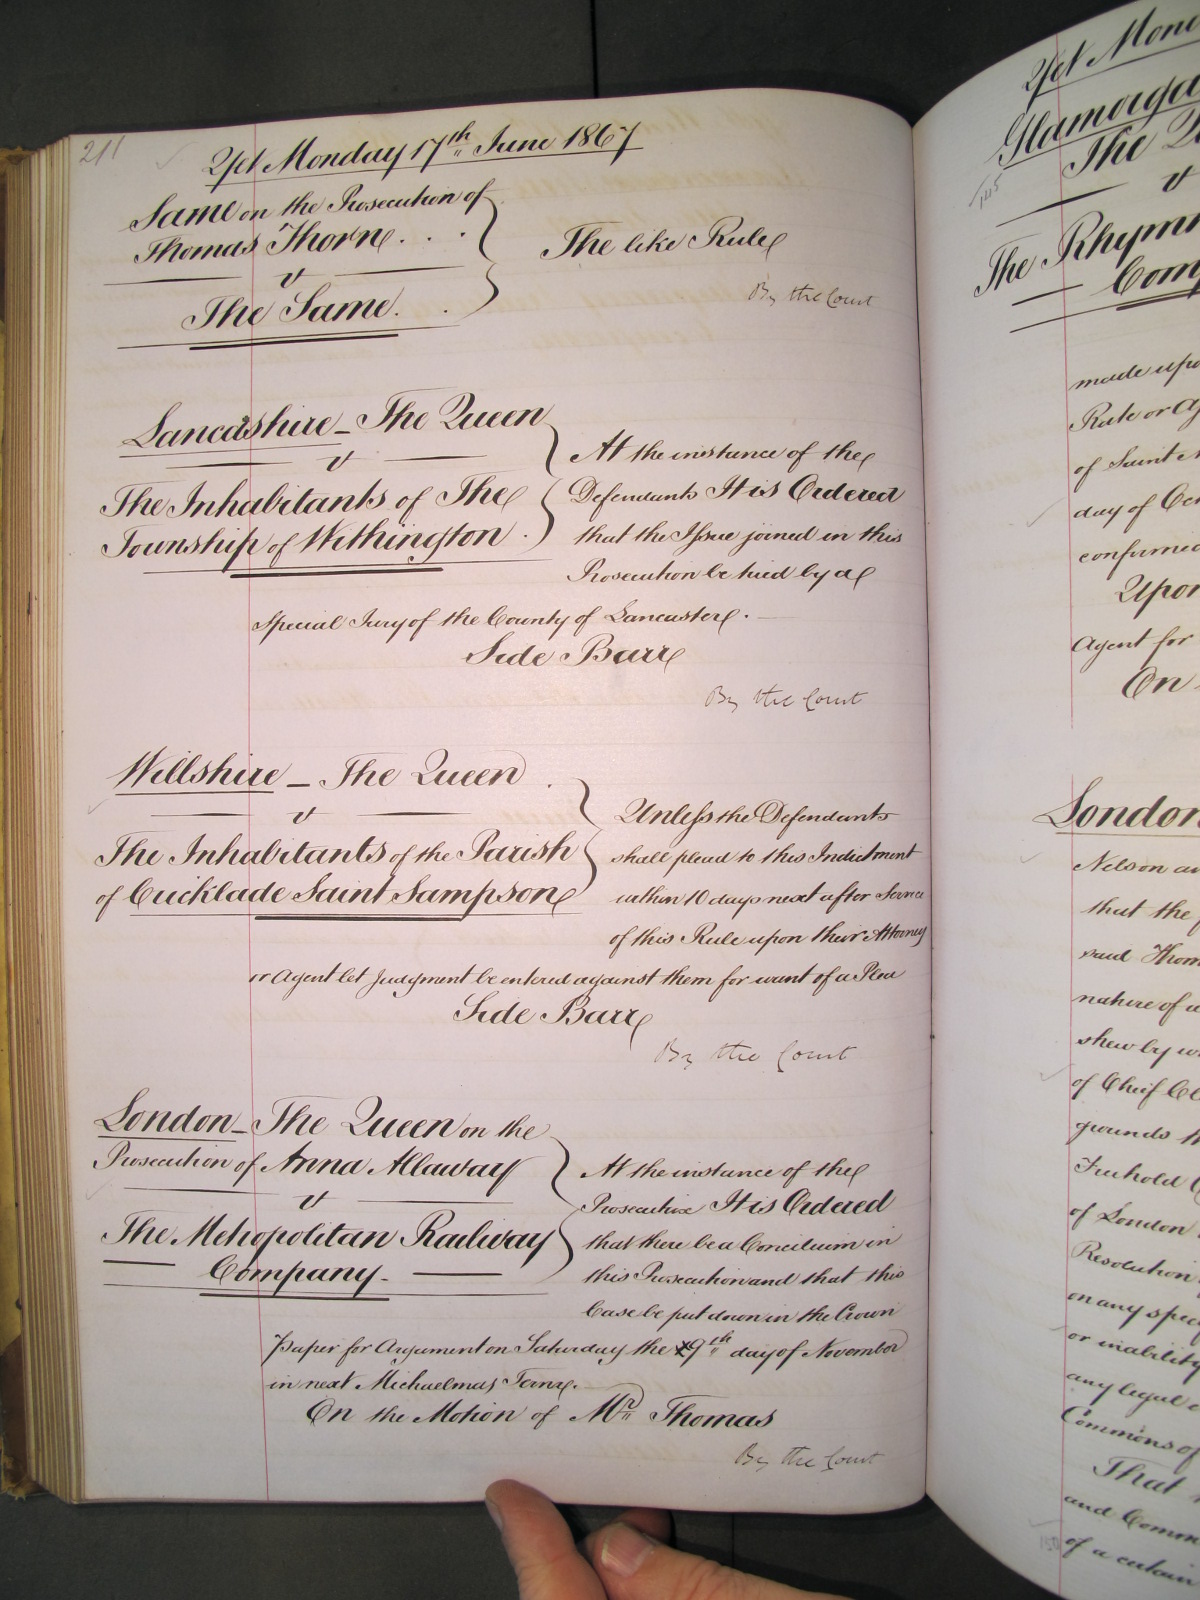 211
Yet Monday 17th June 1867
Same on the Prosecution of
Thomas Thorne . . .
v
The Same. .
The like Rule
By the Court
Lancashire - The Queen
v
The Inhabitants of The
Township of Withington .
At the instance of the
Defendants It is Ordered
that the Issue joined in this
Prosecution be tried by a
Special Jury of the County of Lancaster. -
Side Barr
By the Court
Willshire - The Queen .
v
The Inhabitants of the Parish
of Cricklade Saint Sampson
Unless the Defendants
shall plead to this Indictment
within 10 days next after Service
of this Rule upon their Attorney
or Agent let Judgment be entered against them for want of a Plea
Side Barr
By the Court
London - The Queen on the
Prosecution of Anna Allaway
v
The Metropolitan Railway
Company -
At the instance of the
Prosecutrix It is Ordered
that there be a Concilium in
this Prosecution and that this
Case be put down in the Crown
Paper for Argument on Saturday the 9th day of November
in next Michaelmas Term. -
On the Motion of Mr Thomas
By the Court
The
v
The Rhymn
Com
made upo
Rate or
of Saint
day of
confirmed
Upon
Agent for
On
London
Nelson an
that the
said Thom
nature of a
shew by
of Chief
grounds
Freehold
of London
Resolution
on any spec
or inability
any legal
Commons of
That
and Comm
of a certain